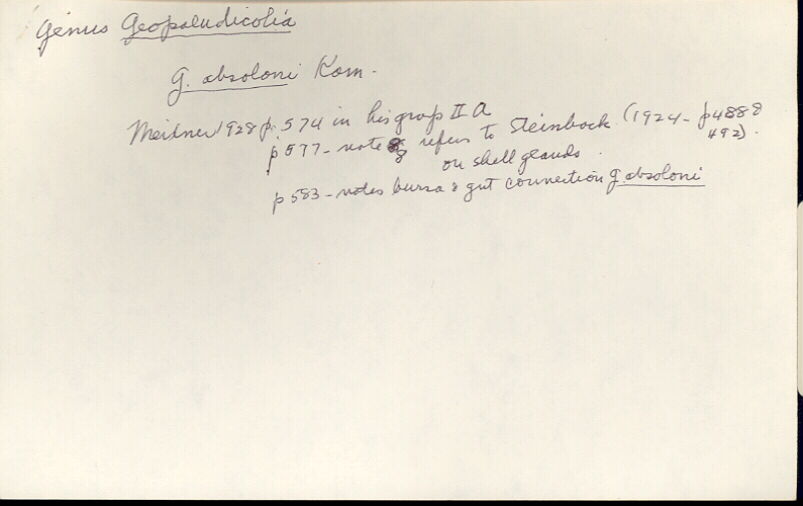 Genus Geopaludicolia
G. absoloni Kom.
Meixner 1928 p. 574 in his group II A
p 577 - note 8 refers to Steinbock (1924 - p 488 &
492).
on shell glands.
p 583 - notes bursa & gut connection G. absoloni